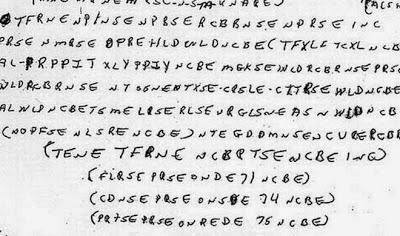 OTFRNENPTNSENPBSERCBBNSENPRSE INC
PRSE NMRSE OPREHLDWLDNCBE(TFXLF TCXL NCB
AL-PRPPIT XLYPPIY NCBE MGKSEWLDRCBRNSE PRSE
WLDRCBRNSE NTOGNENTXSE-CRSLE-CITRSEWLDNCBE
ALWLPNCBETSMELRSERLSEURGLSNEASNWLDNCB
(NOPFSENLSRENCBE)NTEGDDMNSENCURERCBR
(TENE TFRNE NCBRTSENCBE ING)
(FIRSE PRSEONDE 71 NCBE)
(CDNSE PRSEONSDE 74 NCBE)
(PRTSE PRSEONREDE 75 NCBE)